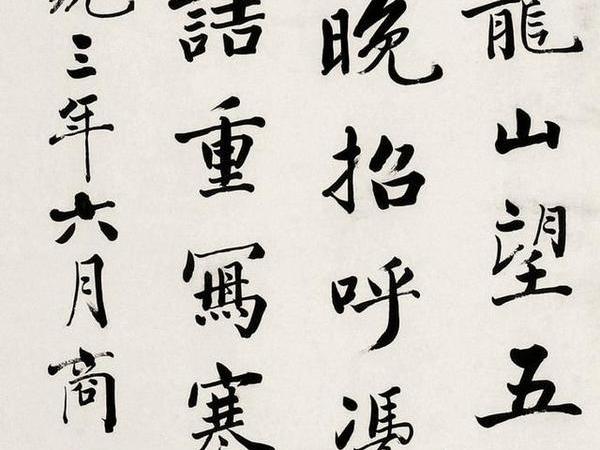 龍山望五
晚招呼馮
詰重寫寒
三年六月商